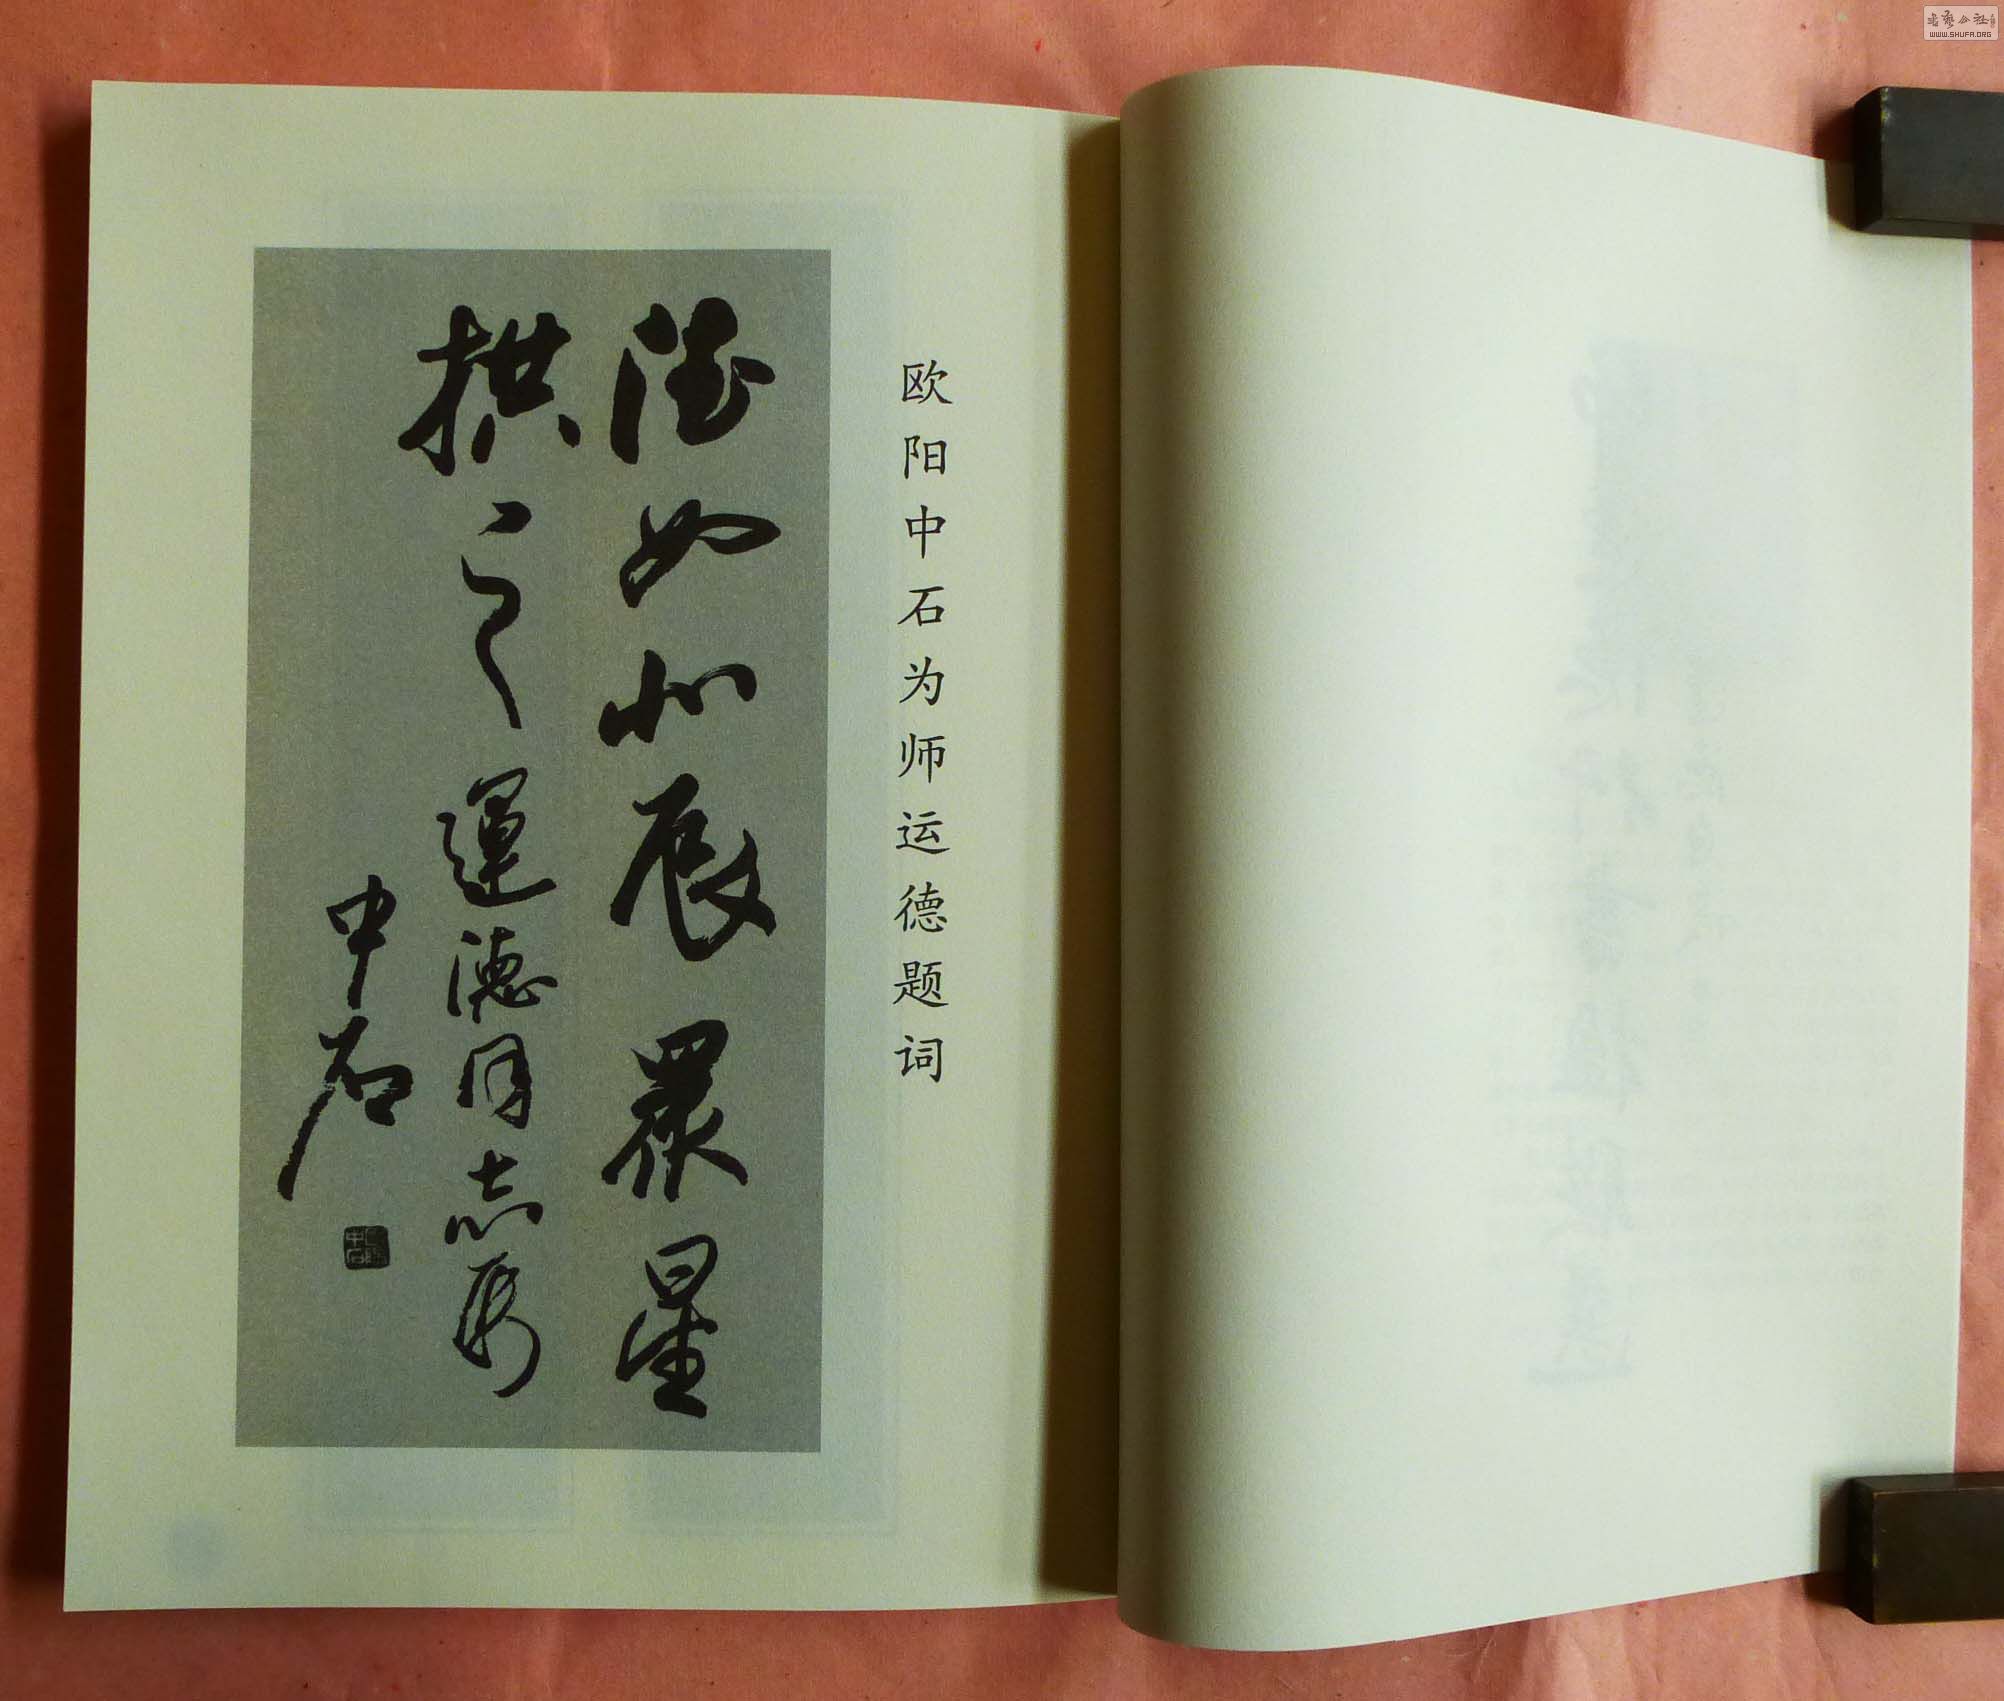 欧阳中石为师运德题词
德如北辰眾星
拱之 運德同志
中石
书艺公社
WWW.SHUFA.ORG